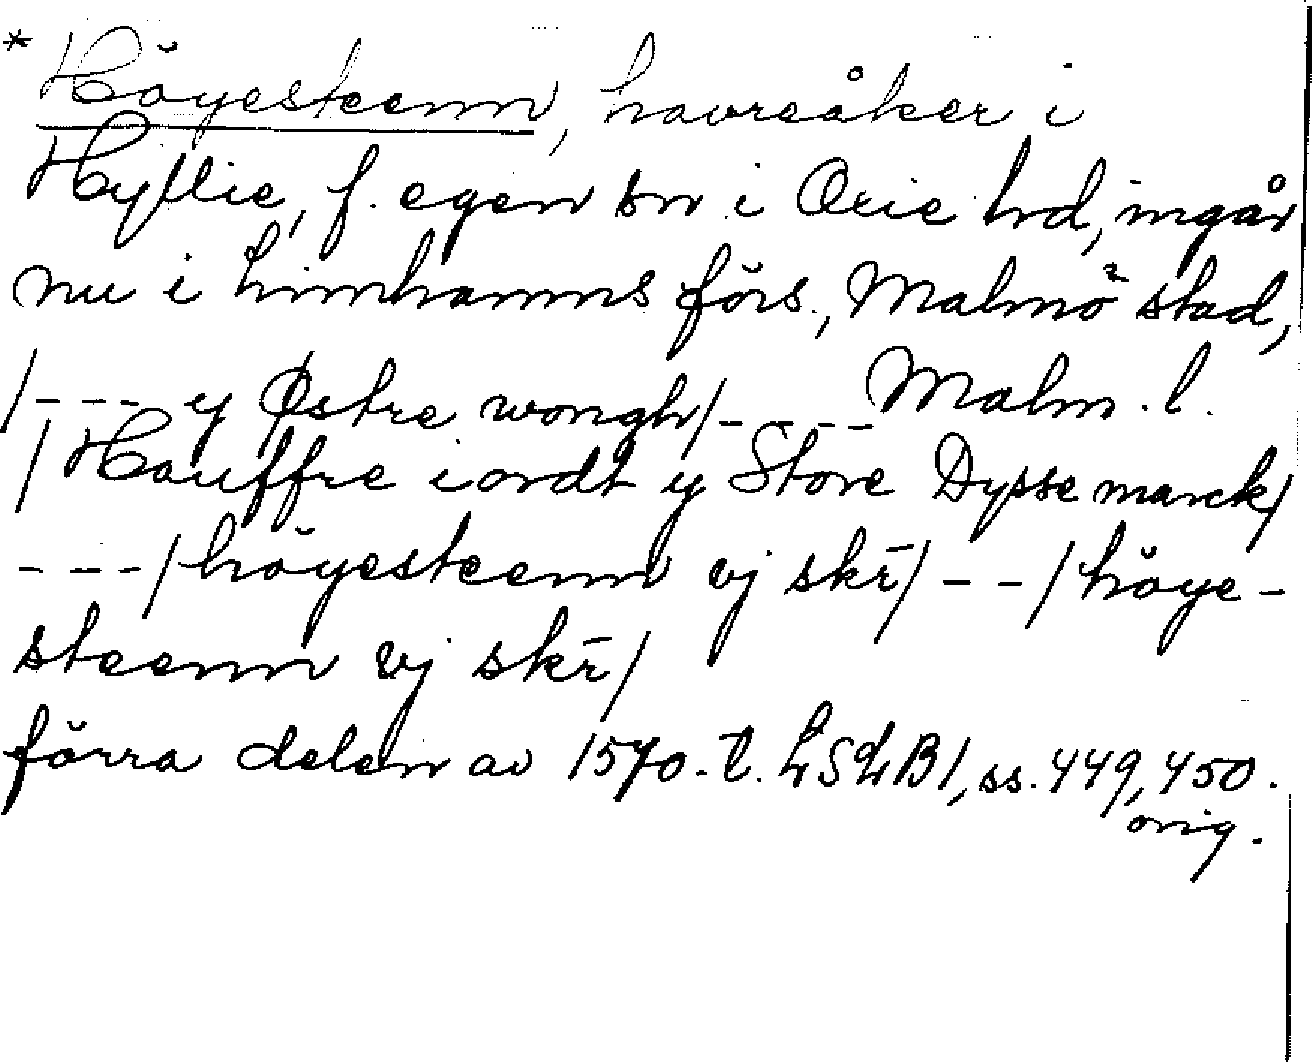 * Höyesteenn, havreåker i
Hyllie, f. egen sn i Oxie hd, ingår
nu i Limhamns förs., Malmö stad,
/---- y Østre wongh/---- Malm. l.
/Hauffre iordt y Store Dysse marck/
---/höyesteenn vj skr̄/--/höye-
steenn vj skr̄/
förra delen av 1570-t. LSLB1, ss. 449, 450.
orig.